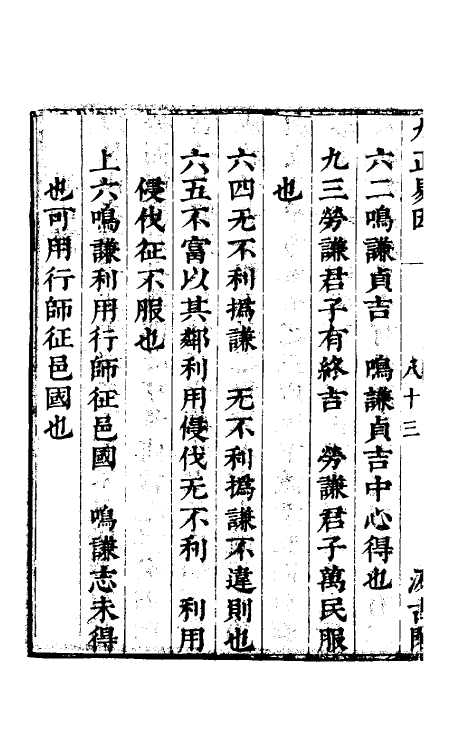 六二鳴謙貞吉　鳴謙貞吉中心得也
九三勞謙君子有終吉　勞謙君子萬民服
也
六四无不利撝謙　无不利撝謙不違則也
六五不富以其鄰利用侵伐无不利　利用
侵伐征不服也
上六鳴謙利用行師征邑國　鳴謙志未得
也可用行師征邑國也